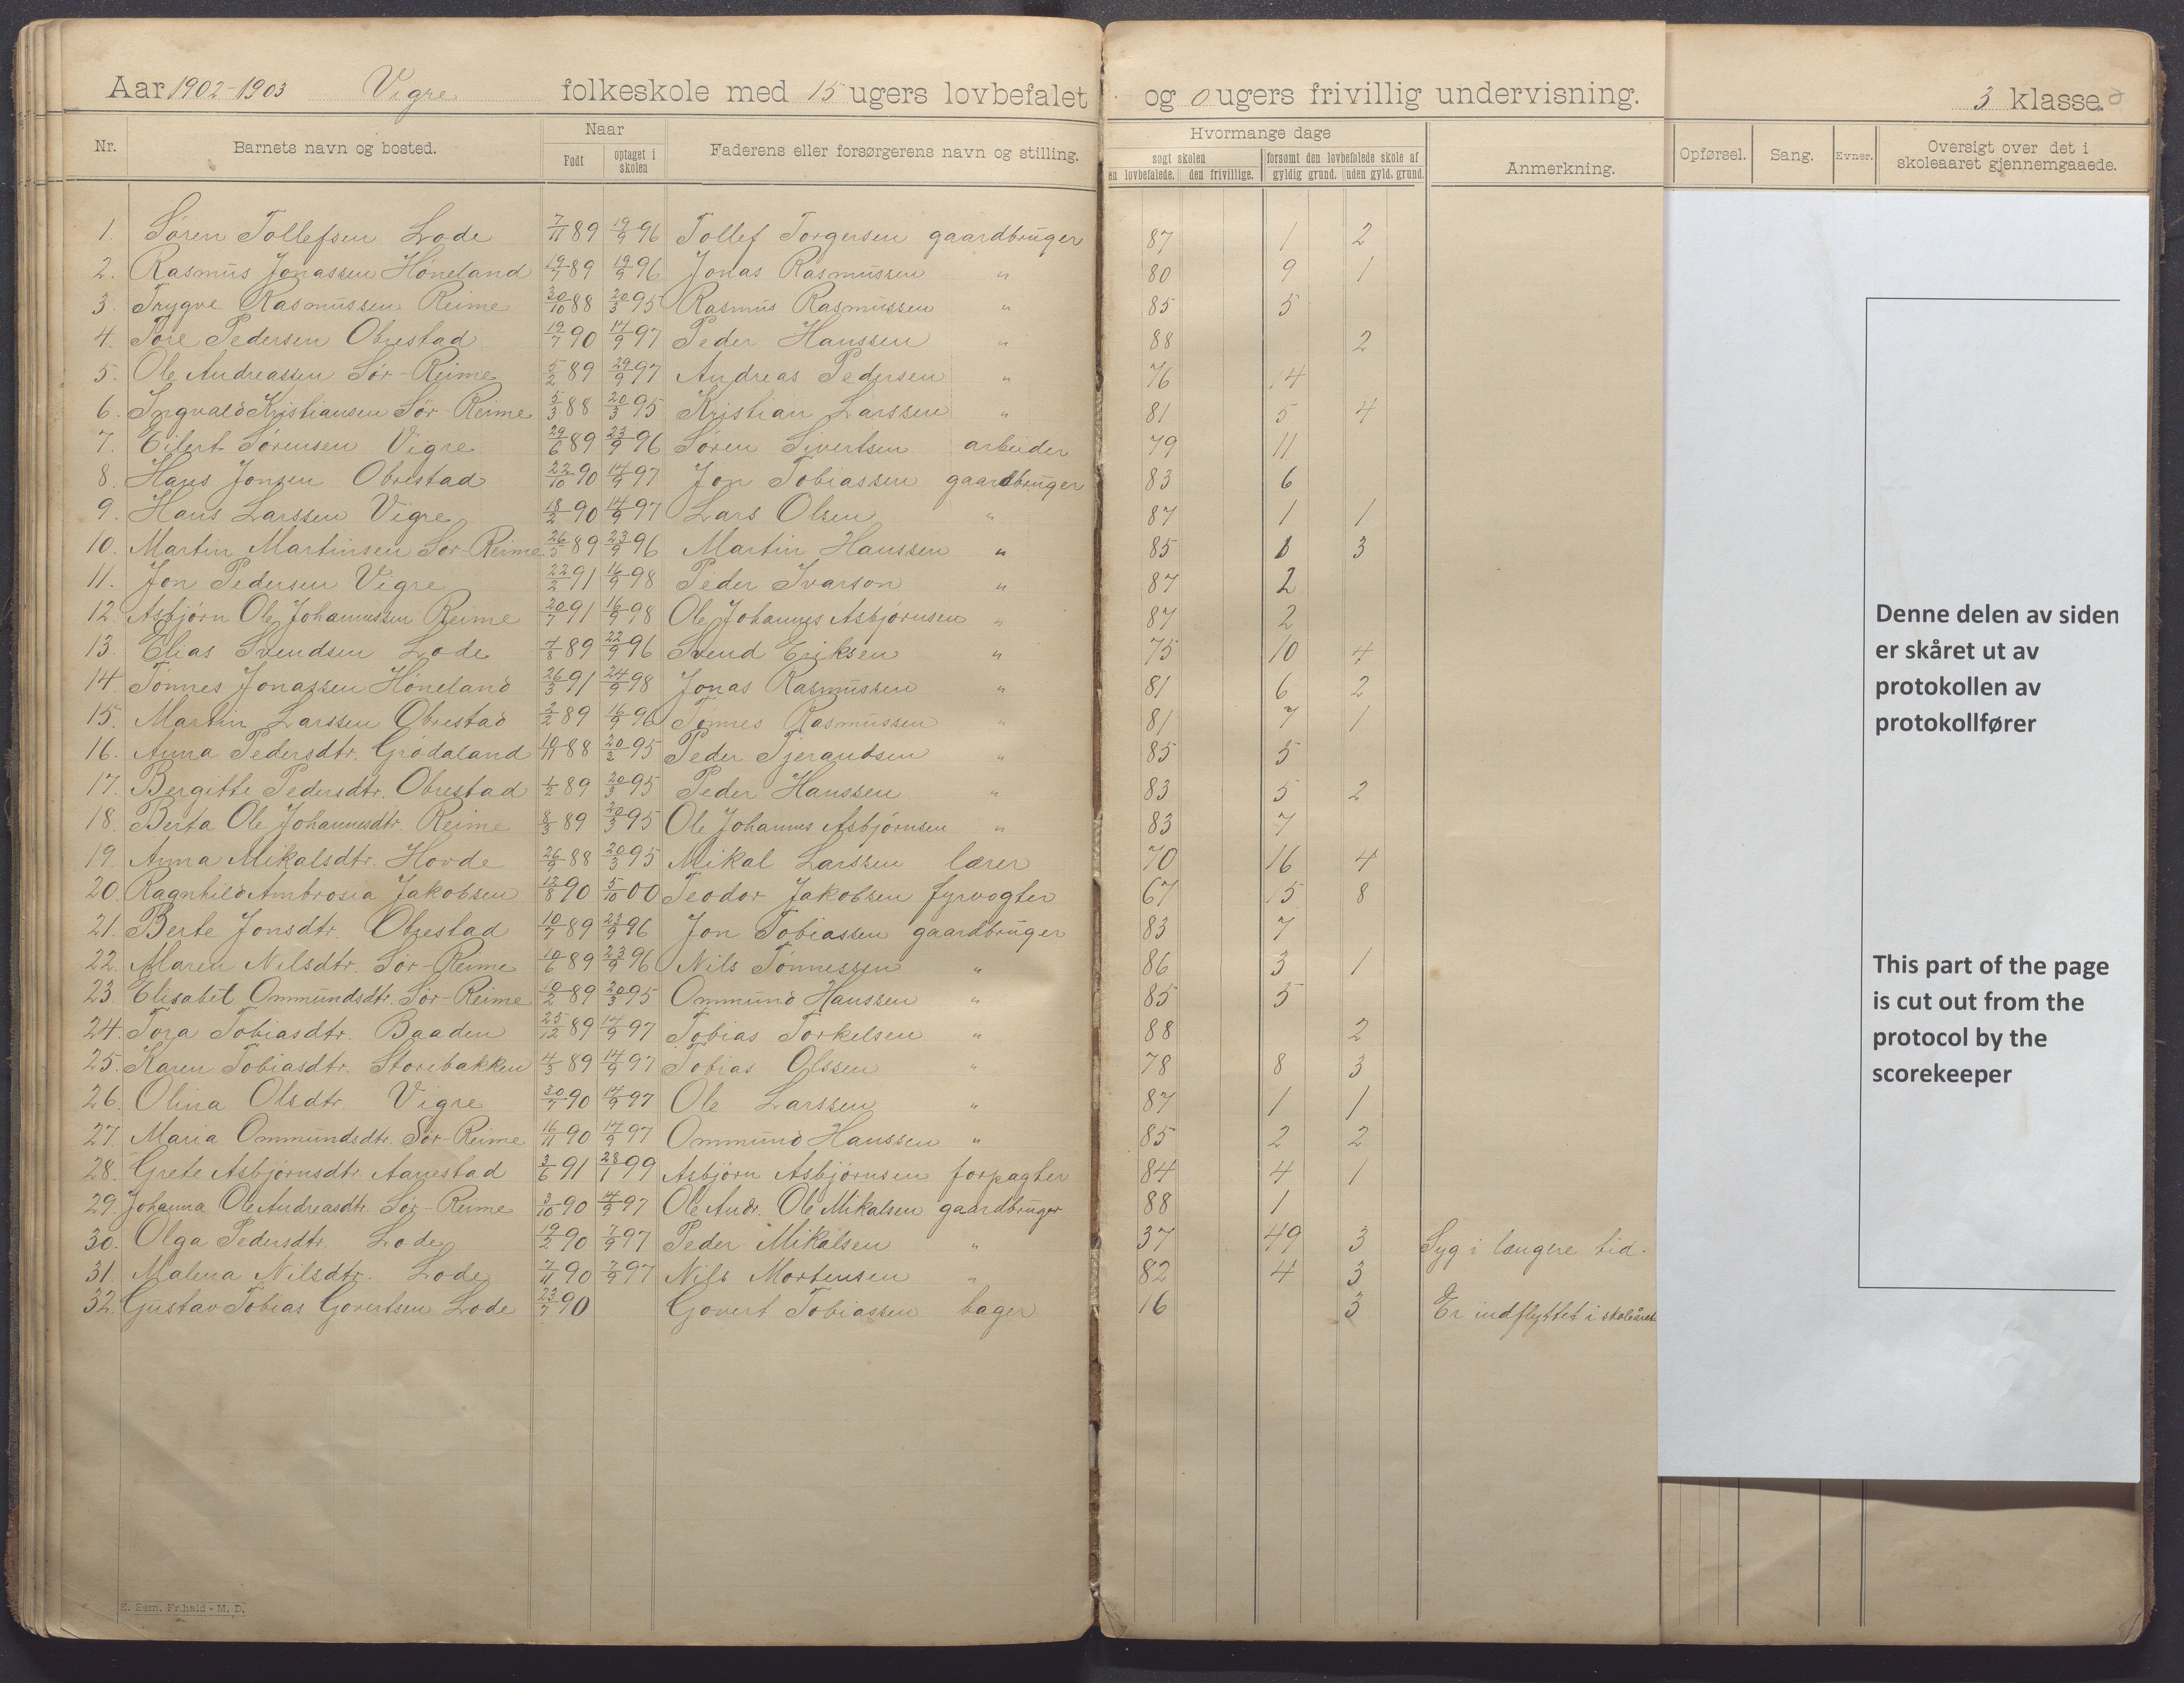 Aar 1902-1903 Vigre folkeskole med 15 ugers lovbefalet og 0 ugers frivillig undervisning. 3 klasse.
Nr. Barnets navn og bosted. Naar Født optaget i skolen Faderens eller forsørgerens navn og stilling. Hvormange dage søgt skolen en lovbefalede. den frivillige. forsømt den lovbefalede skole af gyldig grund. uden gyld. grund. Anmerkning. Opførsel. Sang. Evner. Oversigt over det i skoleaaret gjennemgaaede.
1. Søren Tollefsen Lode 7/11 89 19/9 96 Tollef Torgersen gaardbruger 87 1 2
2. Rasmus Jonassen Høneland 19/7 89 19/9 96 Jonas Rasmussen " 80 9 1
3. Trygve Rasmussen Reime 30/10 88 20/3 95 Rasmus Rasmussen " 85 5
4. Tore Pedersen Obrestad 19/7 90 14/9 97 Peder Hanssen " 88 2
5. Ole Andreassen Sør-Reime 5/2 89 29/9 97 Andreas Pedersen " 76 14
6. Ingvald Kristiansen Sør-Reime 5/3 88 20/3 95 Kristian Larssen " 81 5 4
7. Eilert Sørensen Vigre 29/6 89 23/9 96 Søren Sivertsen arbeider 79 11
8. Hans Jonsen Obrestad 22/10 90 14/9 97 Jon Tobiassen gaardbruger 83 6
9. Hans Larssen Vigre 18/2 90 14/9 97 Lars Olsen " 87 1 1
10. Martin Martinsen Sør-Reime 26/5 89 23/9 96 Martin Hanssen " 85 3
11. Jon Pedersen Vigre 22/2 91 16/9 98 Peder Ivarson " 87 2
12. Asbjørn Ole Johannessen Reime 20/7 91 16/9 98 Ole Johannes Asbjørnsen " 87 2
13. Elias Svendsen Lode 7/8 89 22/9 96 Svend Eriksen " 75 10 4
14. Tønnes Jonassen Høneland 26/3 91 24/9 98 Jonas Rasmussen " 81 6 2
15. Martin Larssen Obrestad 2/2 89 16/9 96 Tønnes Rasmussen " 81 7 1
16. Anna Pedersdtr. Grødaland 10/11 88 20/3 95 Peder Tjerandsen " 85 5
17. Bergitte Pedersdtr. Obrestad 1/2 89 20/3 95 Peder Hanssen " 83 5 2
18. Berta Ole Johannesdtr. Reime 8/3 89 20/3 95 Ole Johannes Asbjørnsen " 83 7
19. Anna Mikalsdtr. Hovde 26/9 88 20/3 95 Mikal Larssen lærer 70 16 4
20. Ragnhild Ambrosia Jakobsen 12/8 90 5/10 00 Teodor Jakobsen fyrvogter 67 15 8
21. Berte Jonsdtr. Obrestad 10/7 89 23/9 96 Jon Tobiassen gaardbruger 83 7
22. Maren Nilsdtr. Sør-Reime 10/6 89 23/9 96 Nils Tønnessen " 86 3 1
23. Elisabet Ommundsdtr. Sør-Reime 10/2 89 20/3 95 Ommund Hanssen " 85 5
24. Tora Tobiasdtr. Baaden 25/12 89 14/9 97 Tobias Torkelsen " 88 2
25. Karen Tobiasdtr. Storebakken 4/3 89 14/9 97 Tobias Olssen " 78 8 3
26. Olina Olsdtr. Vigre 30/7 90 14/9 97 Ole Larssen " 87 1 1
27. Maria Ommundsdtr. Sør-Reime 16/11 90 14/9 97 Ommund Hanssen " 85 2 2
28. Grete Asbjørnsdtr. Aanestad 3/6 91 28/1 99 Asbjørn Asbjørnsen forpagter 84 4 1
29. Johanna Ole Andreasdtr. Sør-Reime 3/10 90 14/9 97 Ole Andr. Ole Mikalsen gaardbruger 88 1
30. Olga Pedersdtr. Lode 19/2 90 7/9 97 Peder Mikalsen " 37 49 3 Syg i længere tid.
31. Malena Nilsdtr. Lode 7/11 90 7/9 97 Nils Mortensen " 82 4 3
32. Gustav Tobias Govertsen Lode 23/7 90 Govert Tobiassen bager 16 3 Er indflyttet i skoleåret
Denne delen av siden
er skåret ut av
protokollen av
protokollfører
This part of the page
is cut out from the
protocol by the
scorekeeper
E. Sem. Fr.hald - M. D.